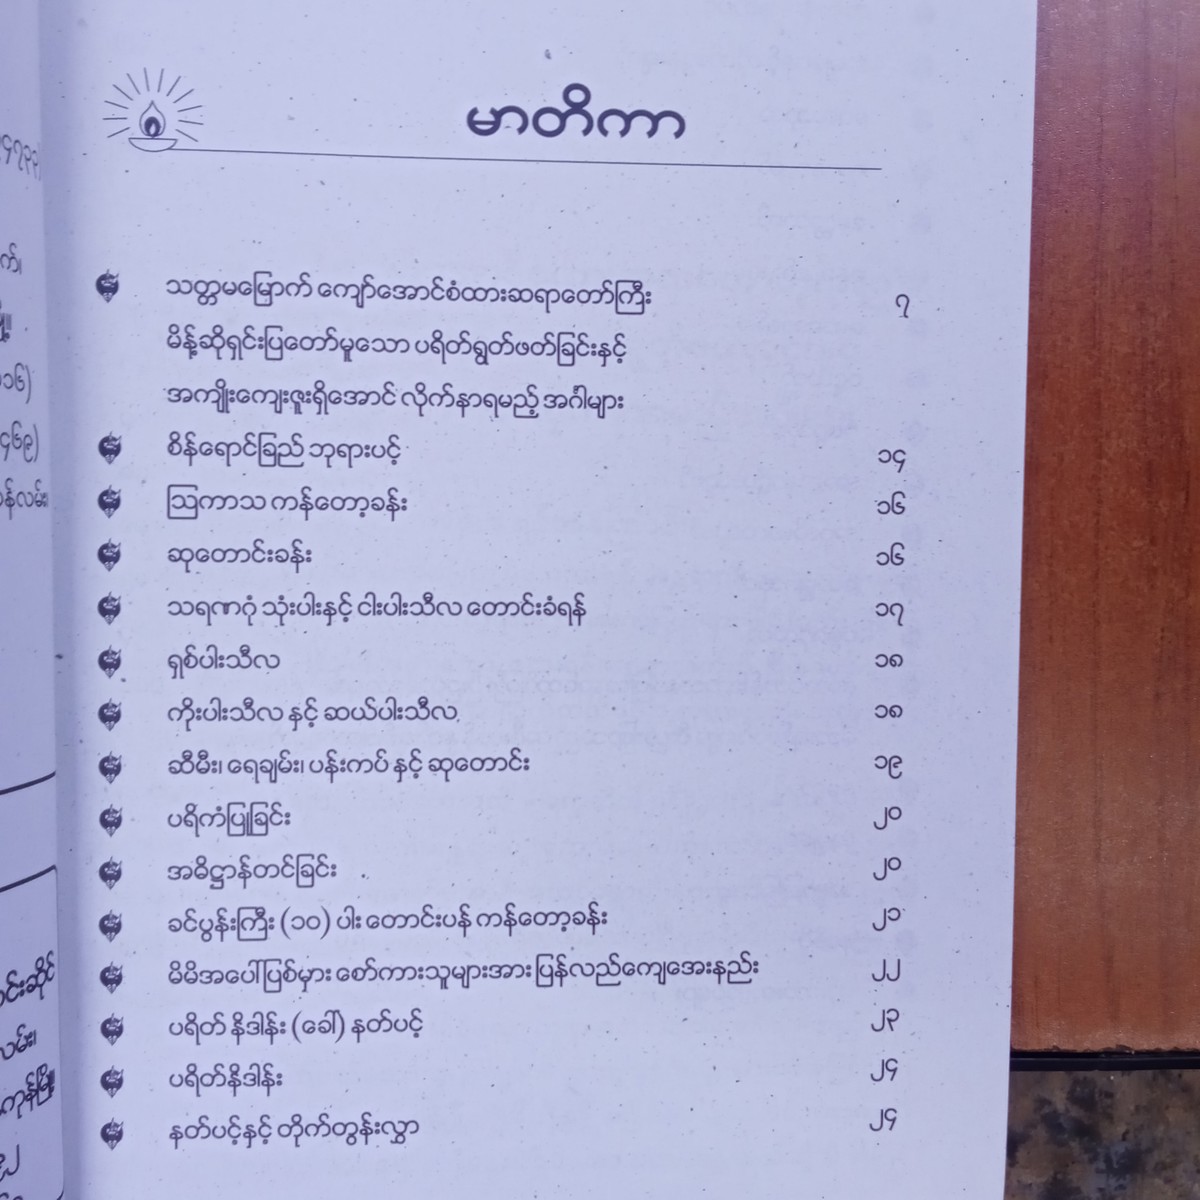 မာတိကာ
သတ္တမမြောက် ကျော်အောင်စံထားဆရာတော်ကြီး ၇
မိန့်ဆိုရှင်းပြတော်မူသော ပရိတ်ရွတ်ဖတ်ခြင်းနှင့်
အကျိုးကျေးဇူးရှိအောင် လိုက်နာရမည့် အင်္ဂါများ
စိန်ရောင်ခြည် ဘုရားပင့် ၁၄
ဩကာသ ကန်တော့ခန်း ၁၆
ဆုတောင်းခန်း ၁၆
သရဏဂုံ သုံးပါးနှင့် ငါးပါးသီလ တောင်းခံရန် ၁၇
ရှစ်ပါးသီလ ၁၈
ကိုးပါးသီလ နှင့် ဆယ်ပါးသီလ ၁၈
ဆီမီး၊ ရေချမ်း၊ ပန်းကပ် နှင့် ဆုတောင်း ၁၉
ပရိကံပြုခြင်း ၂၀
အဓိဋ္ဌာန်တင်ခြင်း ၂၀
ခင်ပွန်းကြီး (၁၀) ပါး တောင်းပန် ကန်တော့ခန်း ၂၁
မိမိအပေါ်ပြစ်မှား စော်ကားသူများအား ပြန်လည်ကျေအေးနည်း ၂၂
ပရိတ် နိဒါန်း (ခေါ်) နတ်ပင့် ၂၃
ပရိတ်နိဒါန်း ၂၄
နတ်ပင့်နှင့် တိုက်တွန်းလွှာ ၂၄